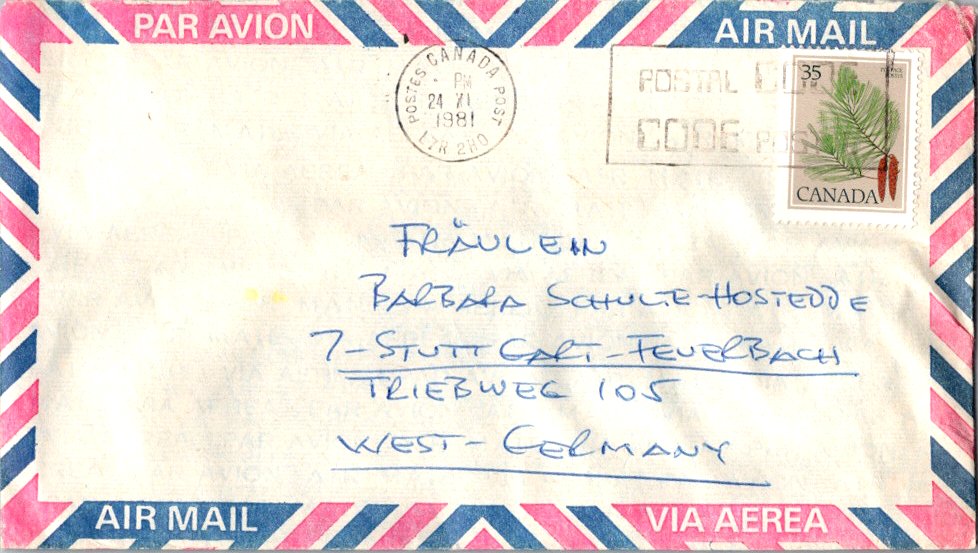 PAR AVION
AIR MAIL
POSTES CANADA POST
PM
24 XI
1981
L7R 2H0
POSTAL CODE
CODE POSTAL
35
CANADA
FRÄULEIN
BARBARA SCHULTE-HOSTEDDE
7-STUTTGART-FEUERBACH
TRIEBWEG 105
WEST-GERMANY
AIR MAIL
VIA AEREA